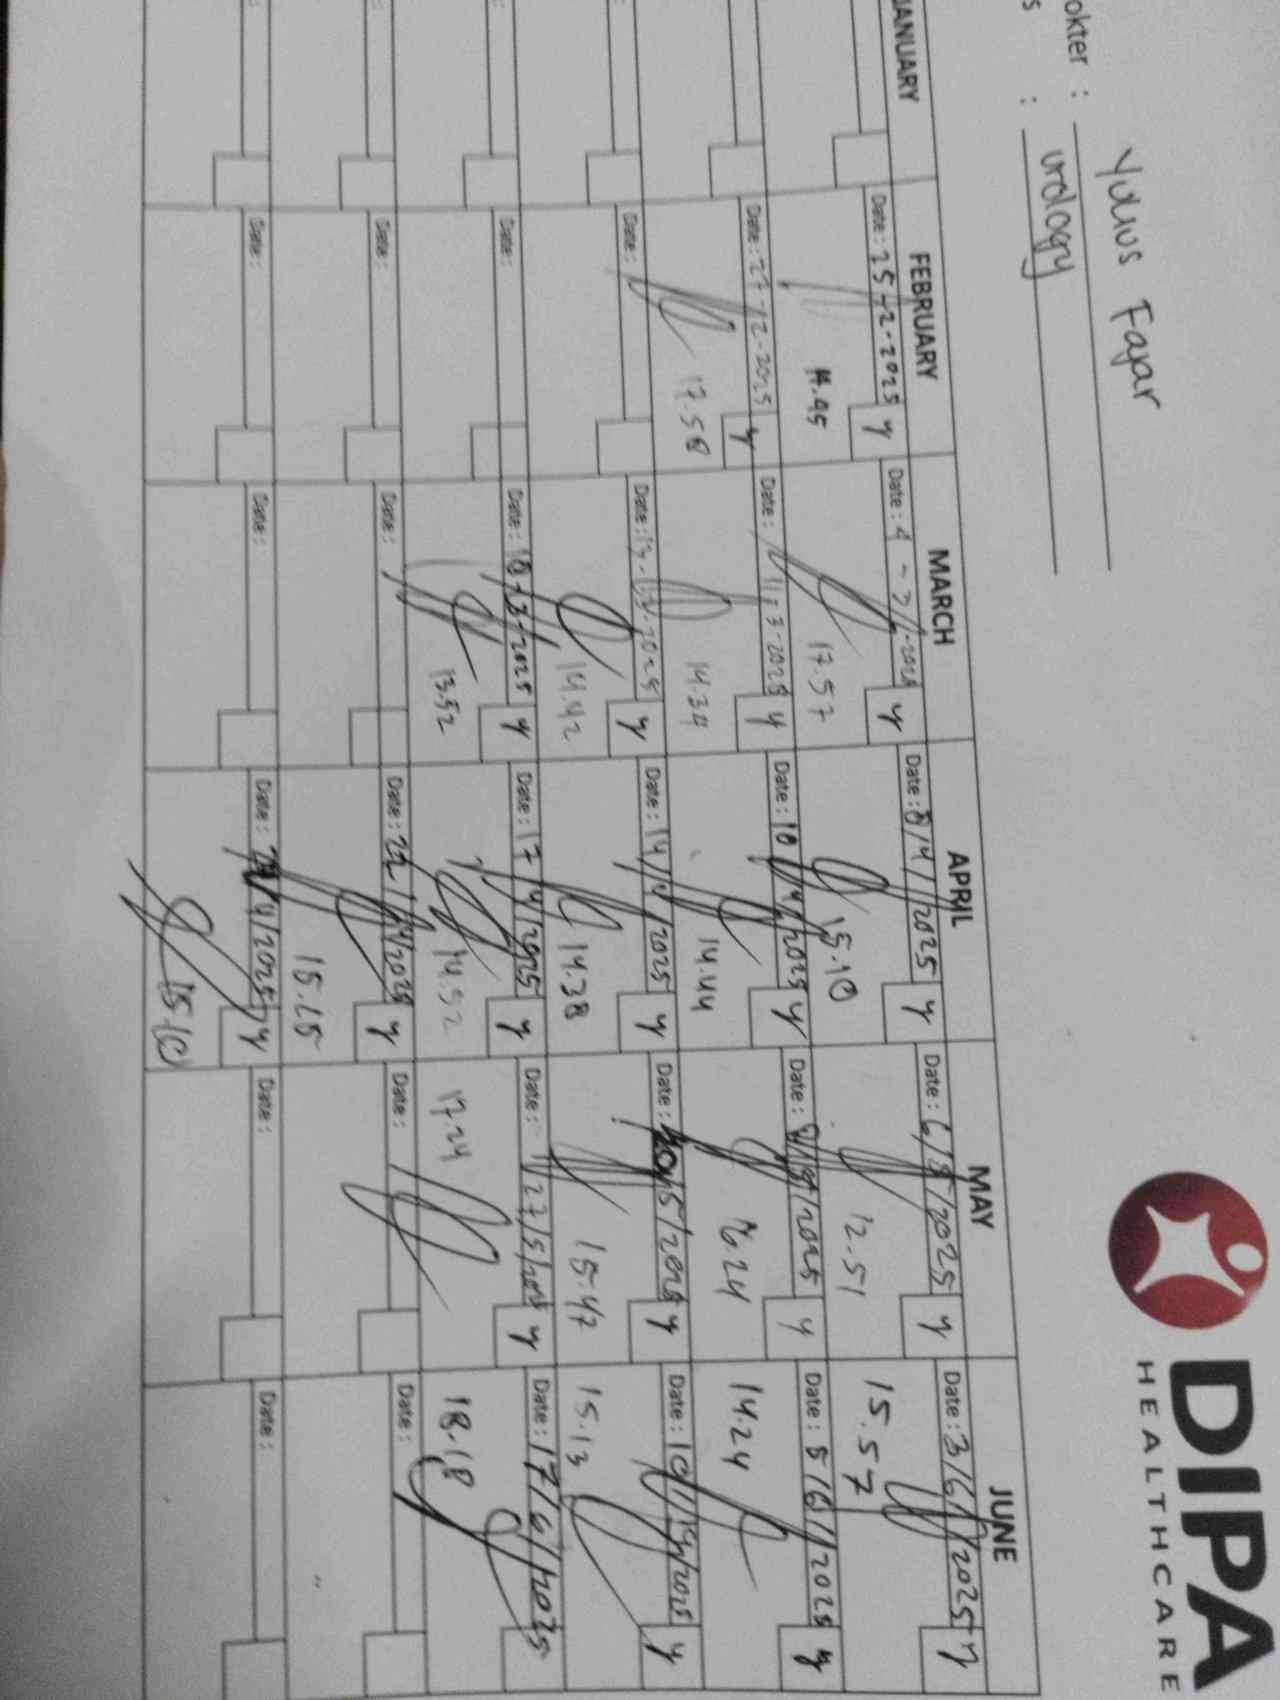 DIPA
HEALTHCARE
okter : Yulius Fajar
s : urology
JANUARY FEBRUARY MARCH APRIL MAY JUNE
Date: 25-2-2025 y Date: 4 - 3 -2025 y Date: 8/4/2025 y Date: 6/5/2025 y Date: 3/6/2025 y
17.57 15.10 12.51 15.57
Date: 27-2-2025 y Date: 11-3-2025 y Date: 10/4/2025 y Date: 8/5/2025 y Date: 5/6/2025 y
17.58 14.34 14.44 16.24 14.24
Date: Date: 13-03-2025 y Date: 14/4/2025 y Date: 20/5/2025 y Date: 10/ y
14.42 14.38 15.47 15.13
Date: Date: 18-3-2025 y Date: 17/4/2025 y Date: 27/5/2025 y Date: 17/6/2025
13.52 14.52 17.24 18.18
Date: Date: Date: 22/4/2025 y Date: Date:
15.25
Date: Date: Date: /4/2025 y Date: Date:
15.10